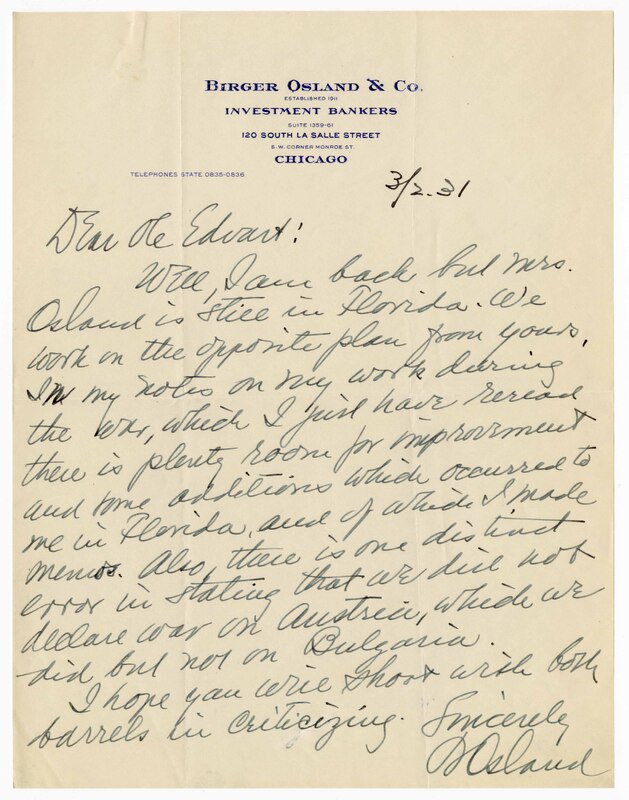 BIRGER OSLAND & CO.
ESTABLISHED 1911
INVESTMENT BANKERS
SUITE 1359-61
120 SOUTH LA SALLE STREET
S.W. CORNER MONROE ST.
CHICAGO
TELEPHONES STATE 0835-0836
3/2.31
Dear Ole Edvart!
Well, I am back but Mrs.
Osland is still in Florida. We
work on the opposite plan from yours.
In my notes on my work during
the war, which I just have reread
there is plenty room for improvement
and some additions which occurred to
me in Florida, and of which I made
memos. Also, there is one distinct
error in stating that we did not
declare war on Austria, which we
did but not on Bulgaria.
I hope you will shoot with both
barrels in criticizing. Sincerely
BOsland